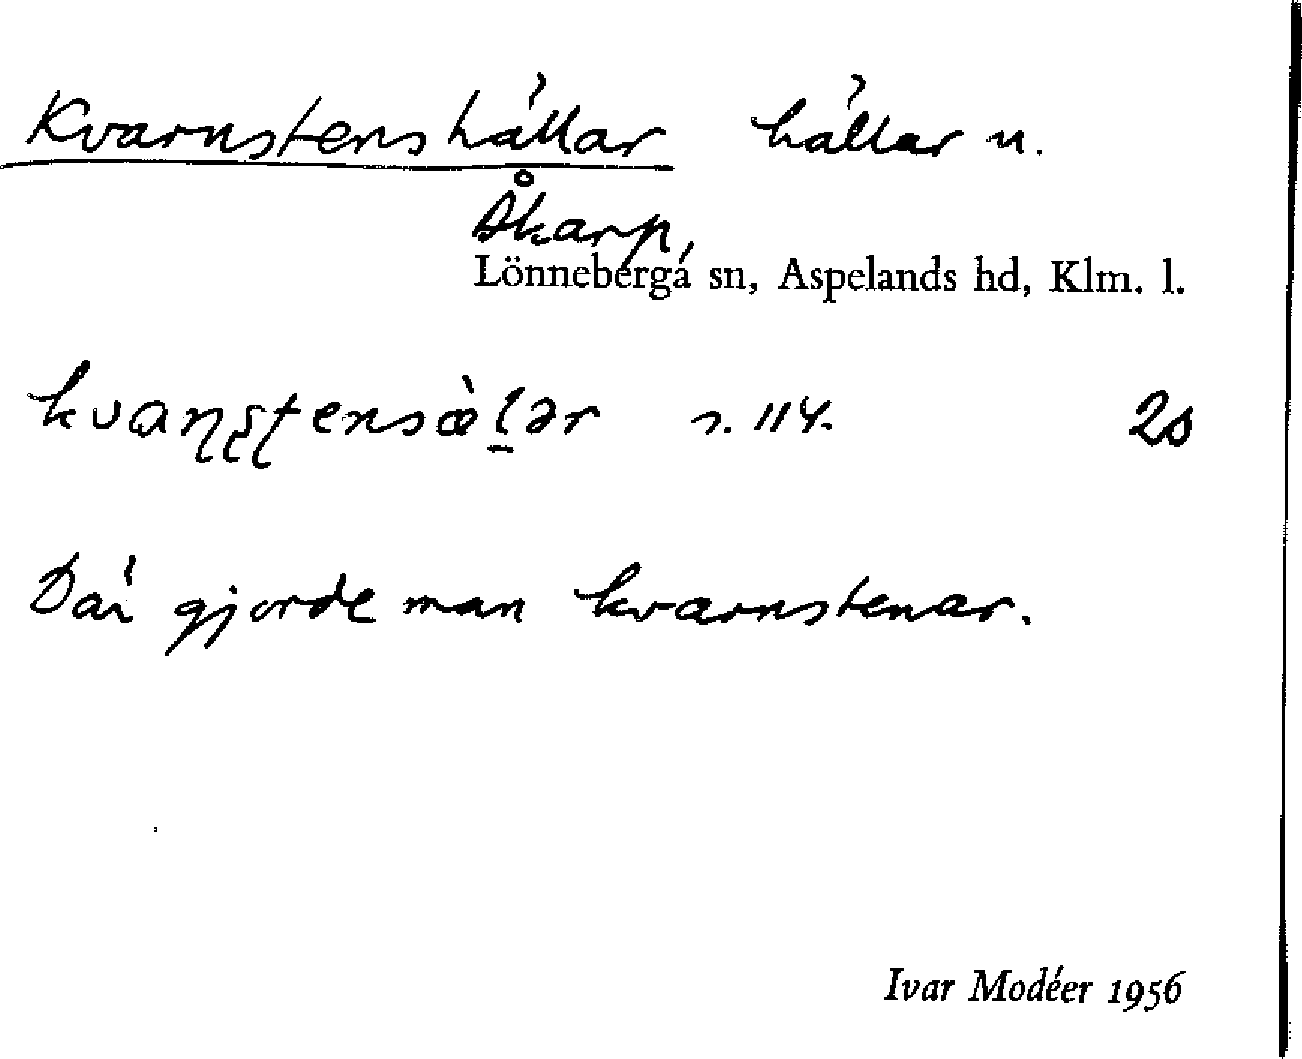 Kvarnstenshällar hällar n.
Åkarp,
Lönneberga sn, Aspelands hd, Klm. l.
kvaɳʂʈensæ̀l̠ər s. 114. 2s
Där gjorde man kvarnstenar.
Ivar Modéer 1956